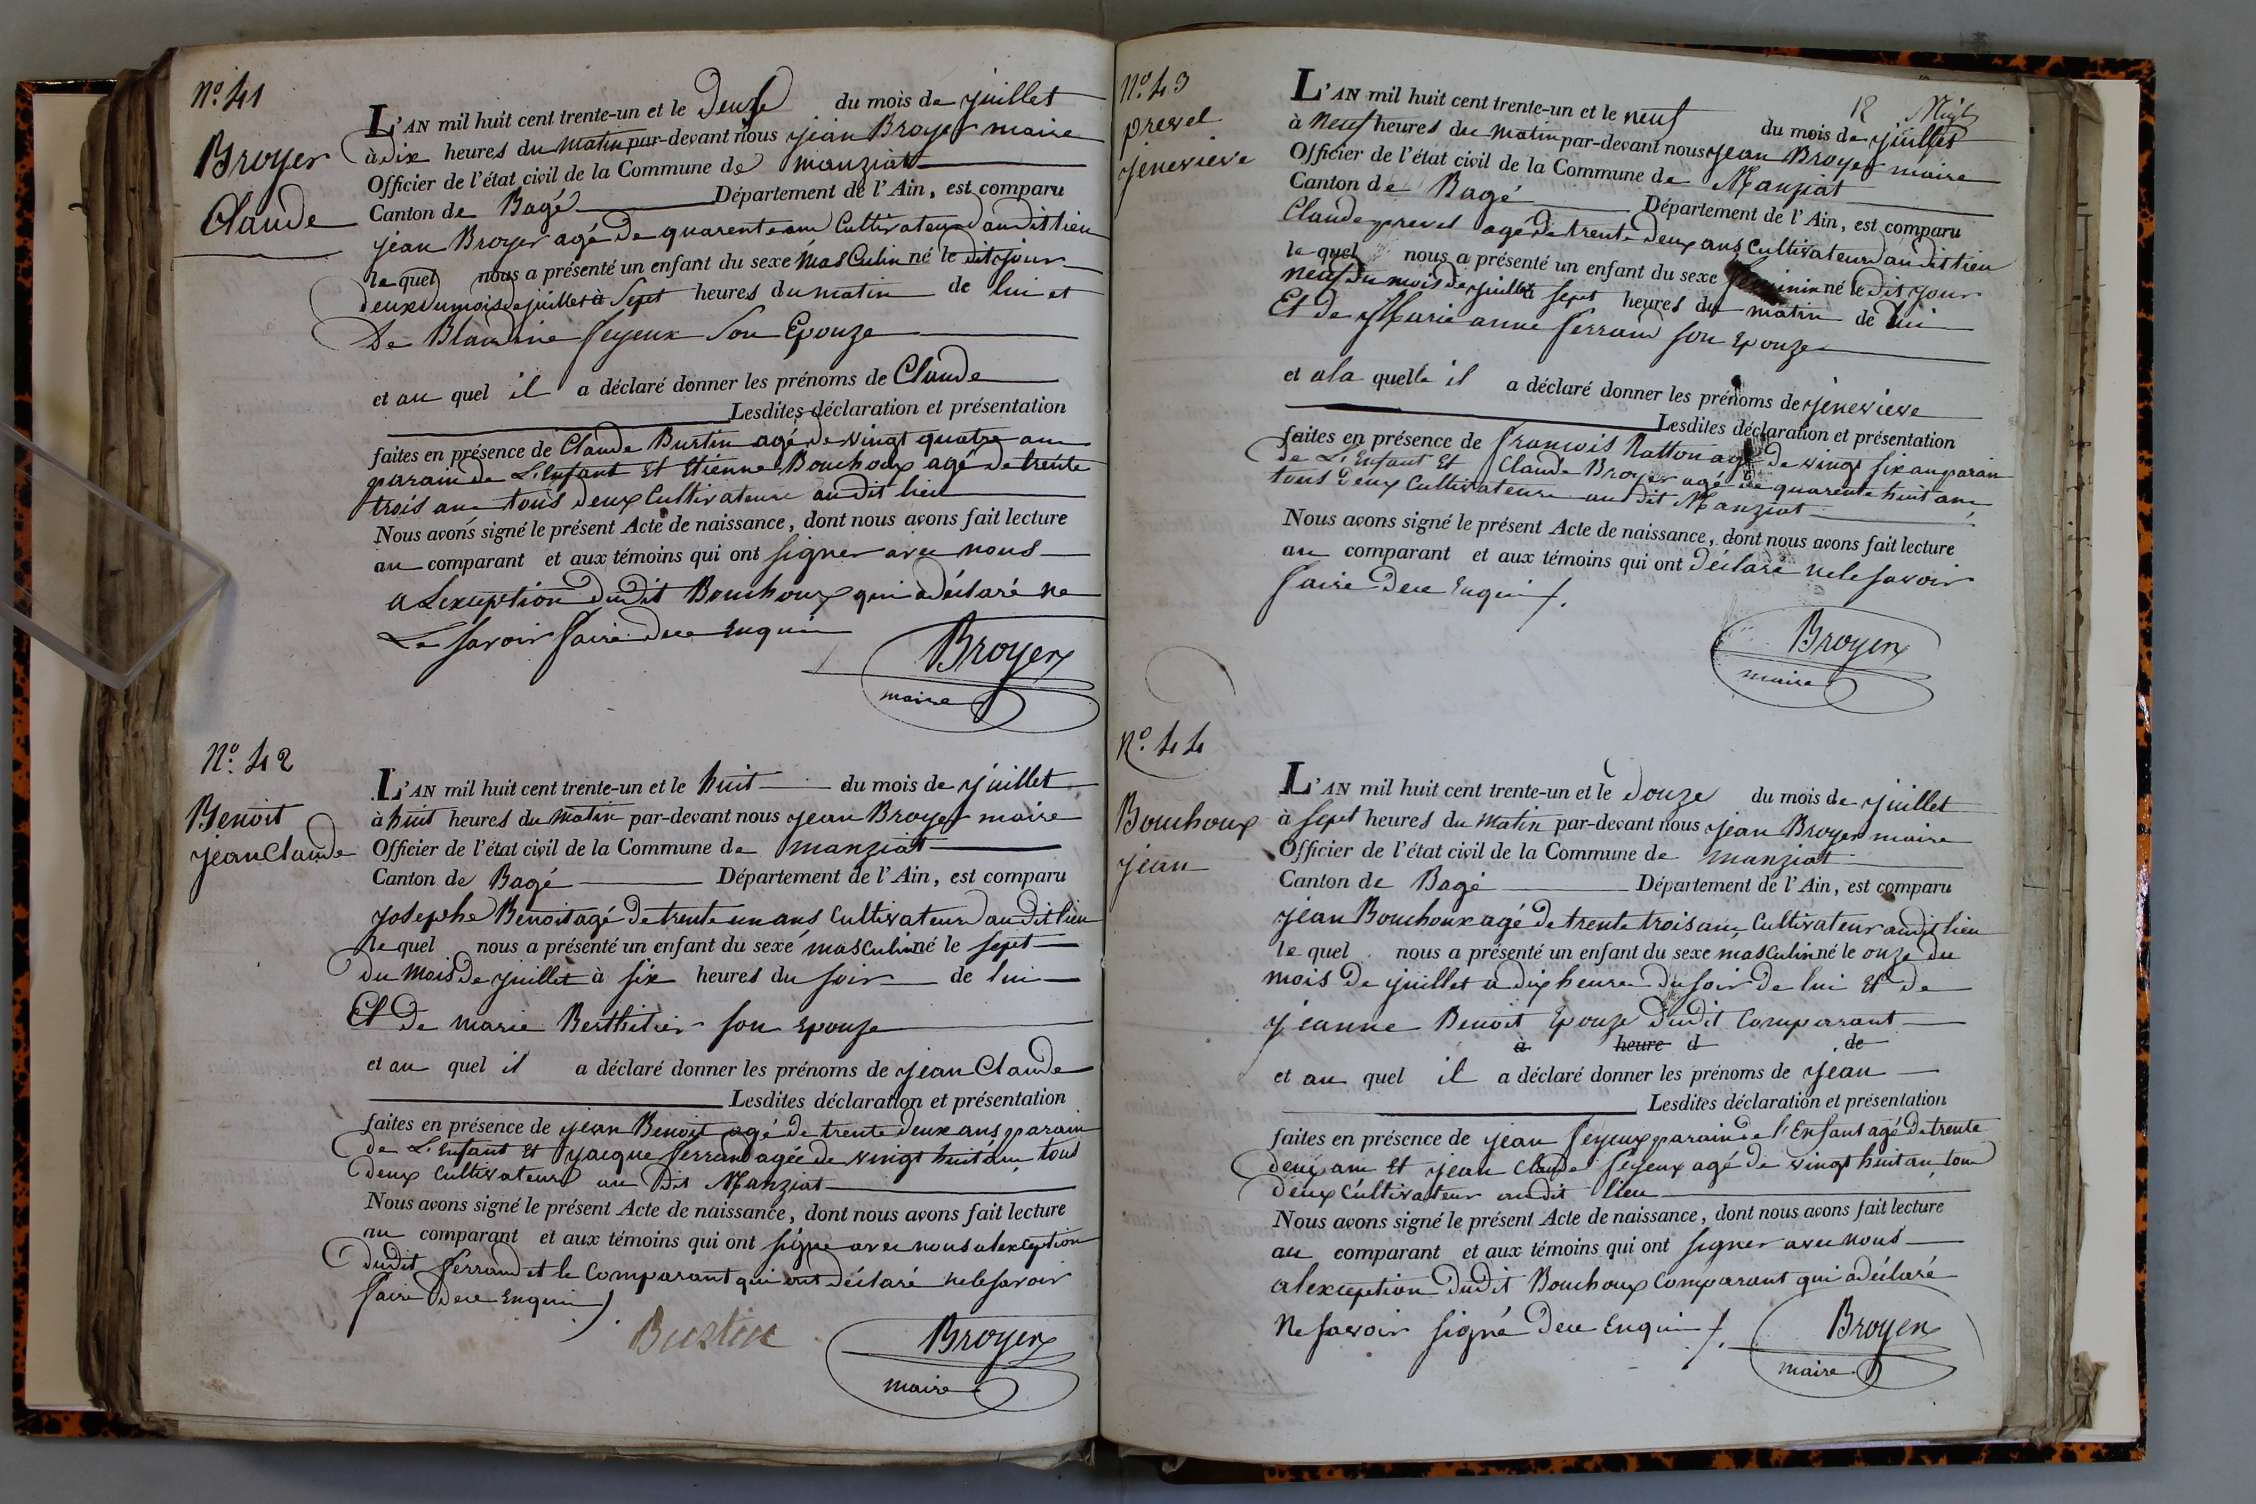 N.° 41
Broyer
Claude
L'AN mil huit cent trente-un et le Deux du mois de juillet
à Dix heures du matin par-devant nous jean Broyer maire
Officier de l'état civil de la Commune de manziat
Canton de Bagé Département de l'Ain, est comparu
jean Broyer agé de quarente ans Cultivateur audit lieu
le quel nous a présenté un enfant du sexe masculin né le dit jour
deux du mois de juillet à Sept heures du matin de lui et
De Blandine feyeux Son Epouze
et au quel il a déclaré donner les prénoms de Claude
Lesdites déclaration et présentation
faites en présence de Claude Burtin agé de vingt quatre ans
parain de L'Enfant Et Etienne Bouchoux agé de trente
trois ans tous deux Cultivateurs audit lieu
Nous avons signé le présent Acte de naissance, dont nous avons fait lecture
au comparant et aux témoins qui ont signer avec nous
a Lexception dudit Bouchoux qui a déclaré ne
Le savoir faire dece Enquis
Broyer
maire
N.° 42
Benoit
jean Claude
L'AN mil huit cent trente-un et le huit du mois de juillet
à huit heures du matin par-devant nous jean Broyer maire
Officier de l'état civil de la Commune de manziat
Canton de Bagé Département de l'Ain, est comparu
josephe Benoit agé de trente un ans Cultivateur audit lieu
le quel nous a présenté un enfant du sexe masculin né le sept
du mois de juillet à six heures du soir de lui
Et de marie Berthilier son Epouze
et au quel il a déclaré donner les prénoms de jean Claude
Lesdites déclaration et présentation
faites en présence de jean Benoit agé de trente deux ans parain
de L'Enfant Et jacque ferrand agée de vingt huit ans tous
deux Cultivateurs au dit Manziat
Nous avons signé le présent Acte de naissance, dont nous avons fait lecture
au comparant et aux témoins qui ont signe avec nous alexception
dudit ferrand et le Comparant qui ont déclaré ne le savoir
faire dece Enquis
Burtin
Broyer
maire
12
N.° 43
prevel
jenevieve
L'AN mil huit cent trente-un et le neuf du mois de juillet
à Neuf heures du matin par-devant nous jean Broyer maire
Officier de l'état civil de la Commune de Manziat
Canton de Bagé Département de l'Ain, est comparu
Claude prevel agé de trente deux ans Cultivateur audit lieu
le quel nous a présenté un enfant du sexe féminin né le dit jour
neuf du mois de juillet à sept heures du matin de lui
Et de Marie anne ferrand son Epouze
et ala quelle il a déclaré donner les prénoms de jenevieve
Lesdites déclaration et présentation
faites en présence de francois Natton agé de vingt six an parain
de L'Enfant Et Claude Broyer agé de quarente huit ans
tous deux Cultivateurs audit Manziat
Nous avons signé le présent Acte de naissance, dont nous avons fait lecture
au comparant et aux témoins qui ont déclaré ne le savoir
faire dece Enquis
Broyer
maire
N.° 44
Bouchoux
jean
L'AN mil huit cent trente-un et le Douze du mois de juillet
à sept heures du matin par-devant nous jean Broyer maire
Officier de l'état civil de la Commune de manziat
Canton de Bagé Département de l'Ain, est comparu
jean Bouchoux agé de trente trois ans Cultivateur audit lieu
le quel nous a présenté un enfant du sexe masculin né le onze du
mois de juillet a dix heures du soir de lui Et de
jeanne Benoit Epouze dudit Comparant
à heure d de
et au quel il a déclaré donner les prénoms de jean
Lesdites déclaration et présentation
faites en présence de jean feyeux parain de l'Enfant agé de trente
deux ans Et jean Claude feyeux agé de vingt huit an tous
deux Cultivateur audit lieu
Nous avons signé le présent Acte de naissance, dont nous avons fait lecture
au comparant et aux témoins qui ont signer avec nous
alexception dudit Bouchoux Comparant qui a déclaré
Ne savoir signé dece Enquis
Broyer
maire